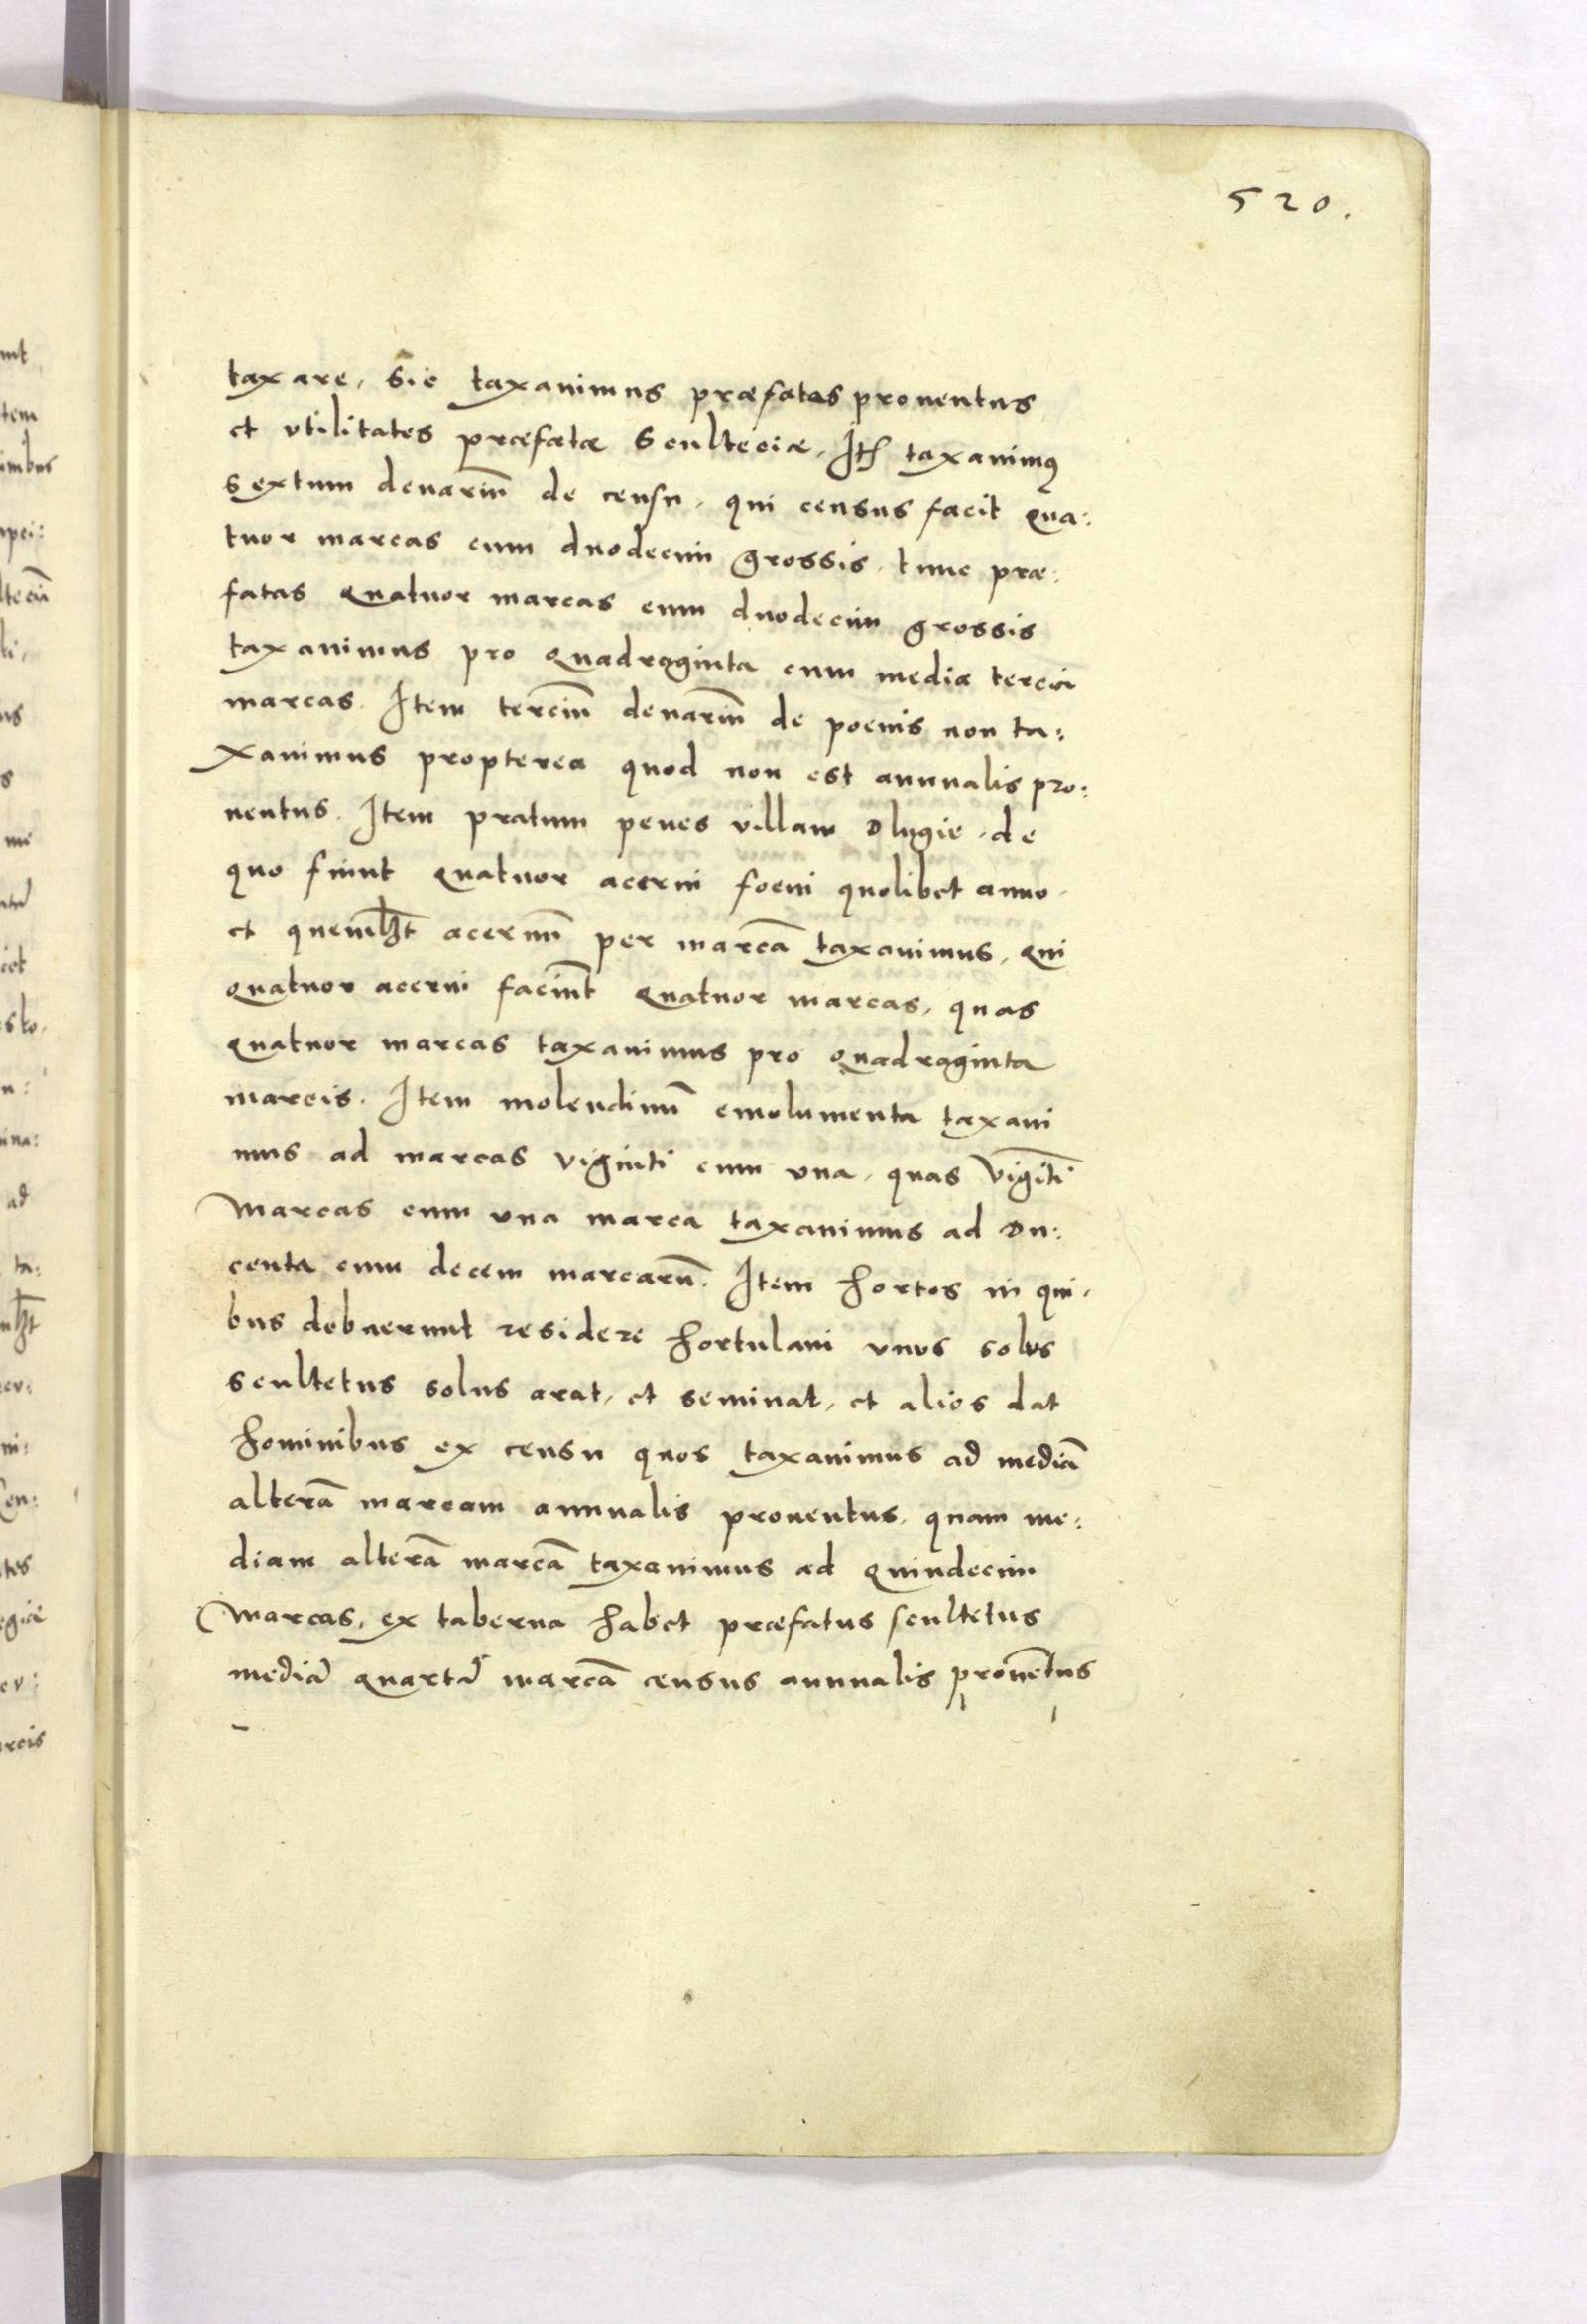 520.
taxare, Sic taxauimus præfatos prouentus
et vtilitates præfatæ Sculteciæ, Itē taxauimꝰ
sextum denariū de censu, qui census facit qua:
tuor marcas cum duodecim grossis, tunc præ:
fatas quatuor marcas cum duodecim grossis
taxauimus pro quadraginta cum media tercia
marcas. Item terciū denariū de poenis non ta:
xauimus propterea quod non est annualis pro:
uentus. Item pratum penes villam Dlugie, de
quo fiunt quatuor acerui foeni quolibet anno,
et quemlꝫt aceruū per marcā taxauimus, qui
quatuor acerui faciūt quatuor marcas, quas
quatuor marcas taxauimus pro quadraginta
marcis. Item molendinū emolumenta taxaui
mus ad marcas viginti cum vna, quas vigīti
marcas cum vna marca taxauimus ad Du:
centa cum decem marcarū. Item hortos in qui,
bus debuerunt residere hortulani vnos solus
scultetus solus arat, et seminat, et alios dat
hominibus ex censu quos taxauimus ad mediā
alterā marcam annualis prouentus, quam me:
diam alterā marcā taxauimus ad quindecim
marcas, ex taberna habet præfatus scultetus
mediā quartā marcā census annualis prouētus
mt
tem
imbus
ad
ta:
tes
rcis